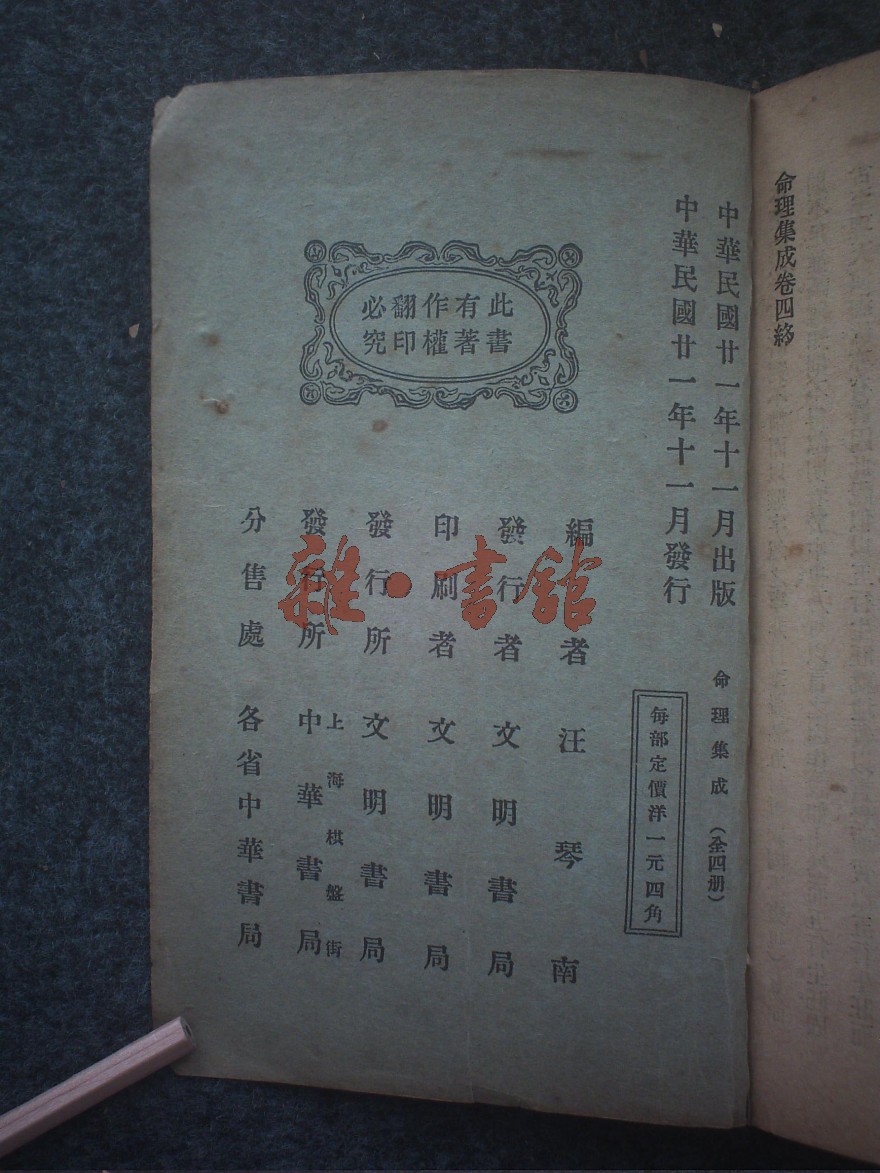 命理集成卷四終
中華民國廿一年十一月出版
中華民國廿一年十一月發行
命理集成（全四册）
每部定價洋一元四角
此書
有著
作權
翻印
必究
編者 汪琴南
發行者 文明書局
印刷者 文明書局
發行所 文明書局
上海棋盤街
發行所 中華書局
分售處 各省中華書局
雜·書舘